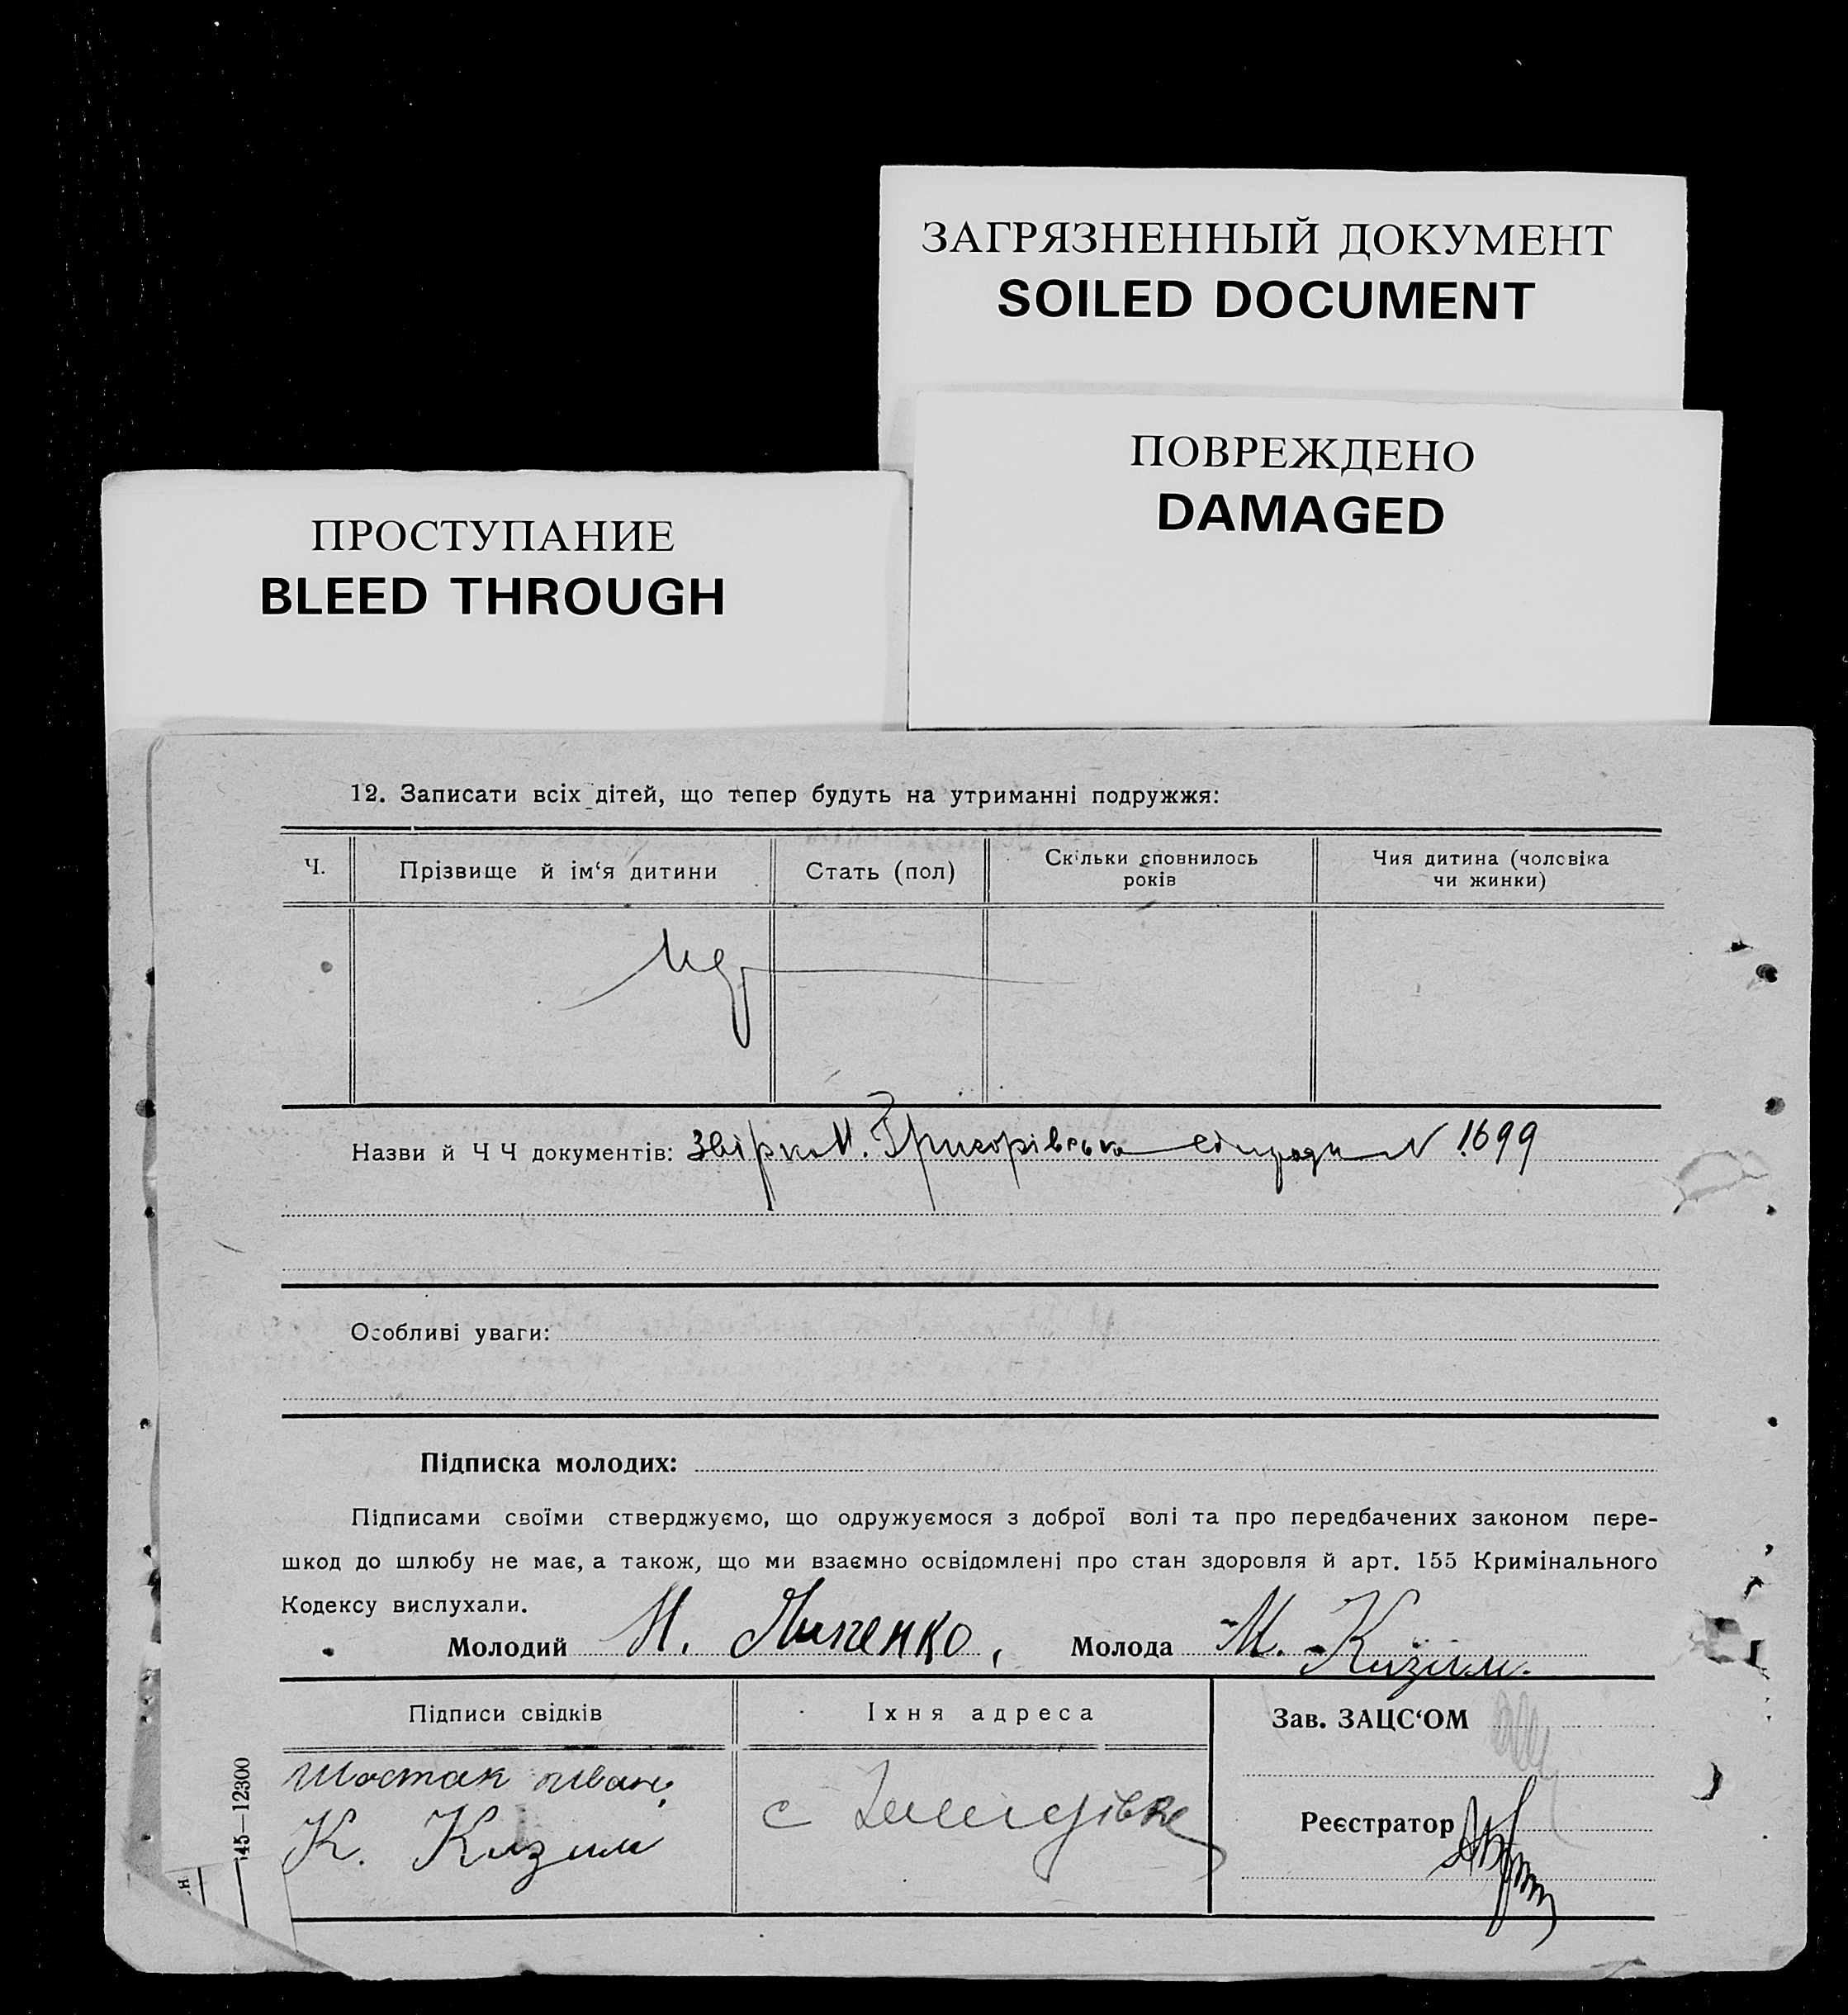 ЗАГРЯЗНЕННЫЙ ДОКУМЕНТ
SOILED DOCUMENT
ПОВРЕЖДЕНО
DAMAGED
ПРОСТУПАНИЕ
BLEED THROUGH
12. Записати всіх дітей, що тепер будуть на утриманні подружжя:
Ч.
Прізвище й ім‘я дитини
Стать (пол)
Скільки сповнилось
років
Чия дитина (чоловіка
чи жинки)
Назви й Ч Ч документів: Григорівська N 1699
Особливі уваги:
Підписка молодих:
Підписами своїми стверджуємо, що одружуємося з доброї волі та про передбачених законом пере-
шкод до шлюбу не має, а також, що ми взаємно освідомлені про стан здоровля й арт. 155 Кримінального
Кодексу вислухали.
Молодий
Молода М. Кизим.
Підписи свідків
Їхня адреса
Зав. ЗАЦС‘ОМ
Шостак Иван,
К. Кизим
с
Реєстратор
45—12300